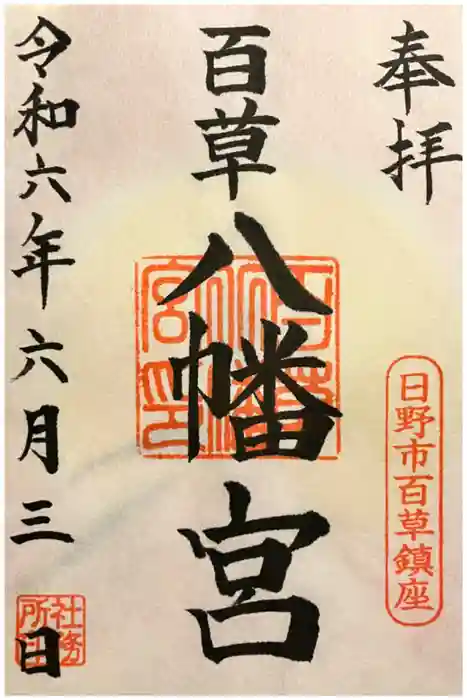 奉拝
日野市百草鎮座
百草八幡宮
令和六年六月三日